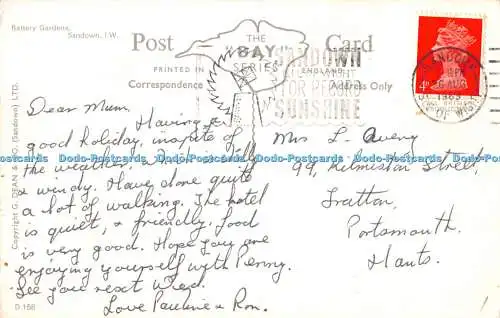 Battery Gardens,
Sandown, I.W.
Post Card
THE
"BAY"
SERIES
PRINTED IN
ENGLAND
Correspondence
Address Only
SANDOWN
FOR
SUNSHINE
SANDOWN
AUG
ISLE OF WIGHT
4d
Dear Mum,
Having a
good holiday, inspite of
the weather,
& windy. Have done quite
a lot of walking. The hotel
is quiet, & friendly, food
is very good. Hope you are
enjoying yourself with Penny.
See you next Wed.
Love Pauline & Ron.
Mrs L. Avery
99, Kilmiston Street,
Fratton,
Portsmouth.
Hants.
Copyright G. DEAN & CO. (Sandown) LTD.
D.156
Dodo-Postcards Dodo-Postcards Dodo-Postcards Dodo-Postcards Dodo-Postcards Dodo-Postcards